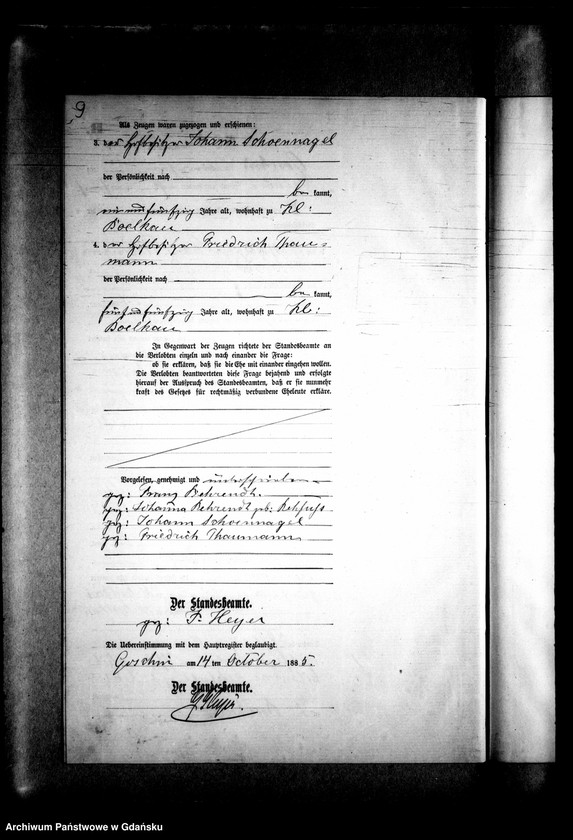 9
Als Zeugen waren zugezogen und erschienen:
3. der Hofbesitzer Johann Schoennagel
der Persönlichkeit nach
be kannt,
Jahre alt, wohnhaft zu Kl:
Boelkau
4. der Hofbesitzer Friedrich Thau=
mann
der Persönlichkeit nach
be kannt,
fünf und fünfzig Jahre alt, wohnhaft zu Kl:
Boelkau
In Gegenwart der Zeugen richtete der Standesbeamte an
die Verlobten einzeln und nach einander die Frage:
ob sie erklären, daß sie die Ehe mit einander eingehen wollen.
Die Verlobten beantworteten diese Frage bejahend und erfolgte
hierauf der Ausspruch des Standesbeamten, daß er sie nunmehr
kraft des Gesetzes für rechtmäßig verbundene Eheleute erkläre.
Vorgelesen, genehmigt und unterschrieben
gez: Franz Behrendt.
gez: Johanna Behrendt geb: Rehfuß
gez: Johann Schoennagel
gez: Friedrich Thaumann
Der Standesbeamte.
gez: F. Heyer
Die Uebereinstimmung mit dem Hauptregister beglaubigt.
Goschin am 14 ten October 1885.
Der Standesbeamte.
Heyer.
Archiwum Państwowe w Gdańsku